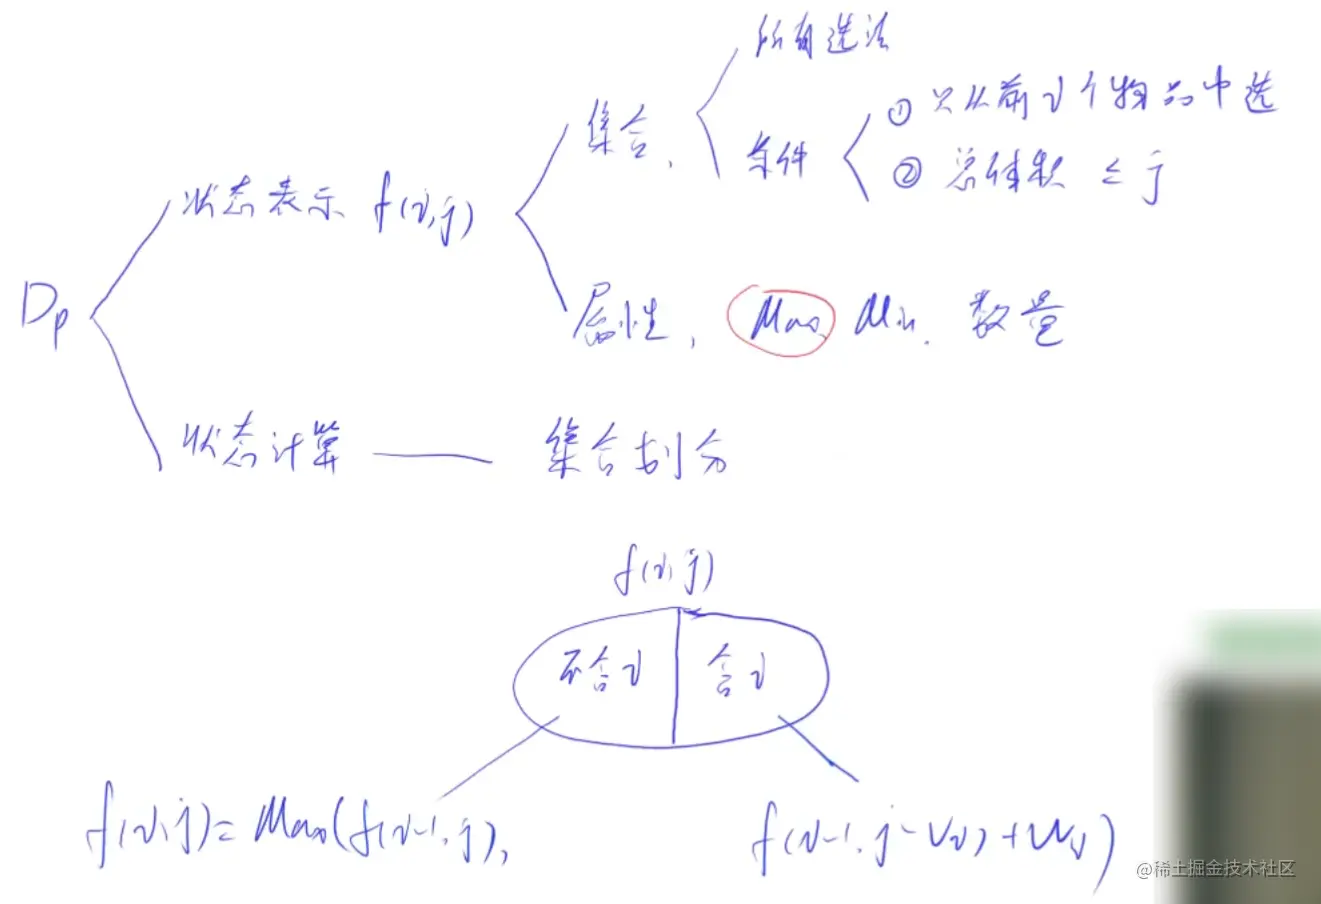 所有选法
集合,
条件
① 只从前i个物品中选
② 总体积 ≤ j
状态表示 f(i,j)
Dp
属性, Max Min. 数量
状态计算 —— 集合划分
f(i,j)
不含i 含i
f(i,j)= Max(f(i-1,j), f(i-1,j-Vi)+Wi)
@稀土掘金技术社区